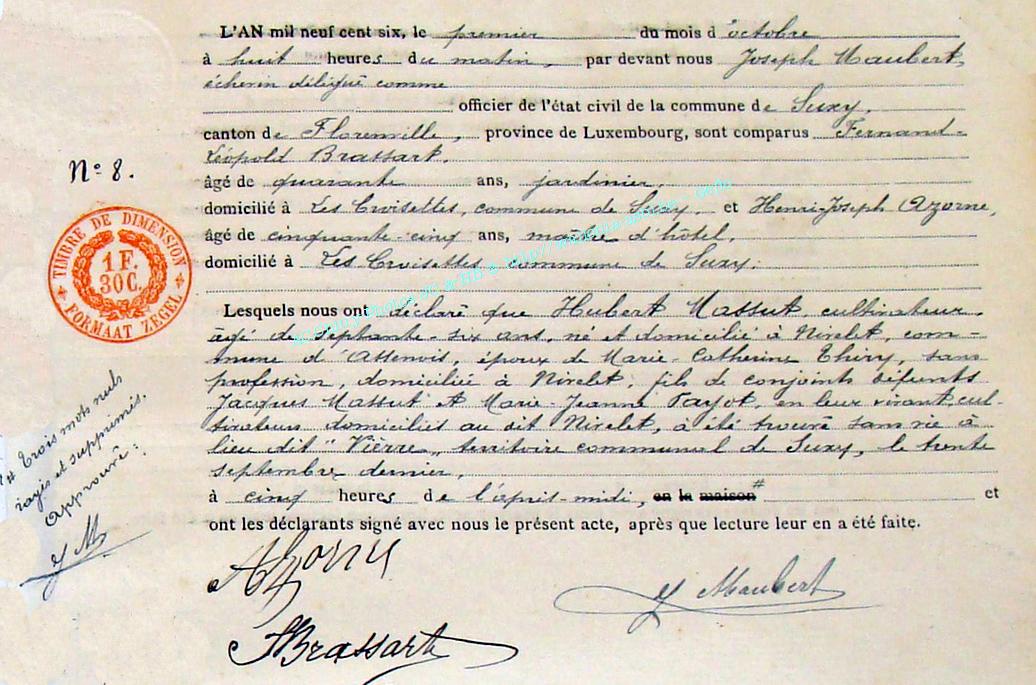 L'AN mil neuf cent six, le premier du mois d'octobre
à huit heures du matin, par devant nous Joseph Maubert,
échevin délégué comme
officier de l'état civil de la commune de Suxy,
canton de Florenville, province de Luxembourg, sont comparus Fernand-
Léopold Brassart,
N° 8.
âgé de quarante ans, jardinier,
domicilié à Les Croisettes, commune de Suxy, et Henri-Joseph Azorne,
âgé de cinquante-cinq ans, maître d'hôtel,
domicilié à Les Croisettes, commune de Suxy.
TIMBRE DE DIMENSION
1 F.
30 C.
FORMAAT ZEGEL
Lesquels nous ont déclaré que Hubert Massut, cultivateur,
âgé de septante-six ans, né et domicilié à Nivelet, com-
mune d'Assenois, époux de Marie-Catherine Thiry, sans
profession, domiciliée à Nivelet, fils de conjoints défunts
Jacques Massut et Marie-Jeanne Payot, en leur vivant cul-
tivateurs domiciliés au dit Nivelet, a été trouvé sans vie à
lieu dit "Vièrre„ territoire communal de Suxy, le trente
septembre dernier,
à cinq heures de l'après-midi, en la maison # et
ont les déclarants signé avec nous le présent acte, après que lecture leur en a été faite.
# Trois mots nuls
rayés et supprimés.
Approuvé:
J M
J Maubert
Brassart